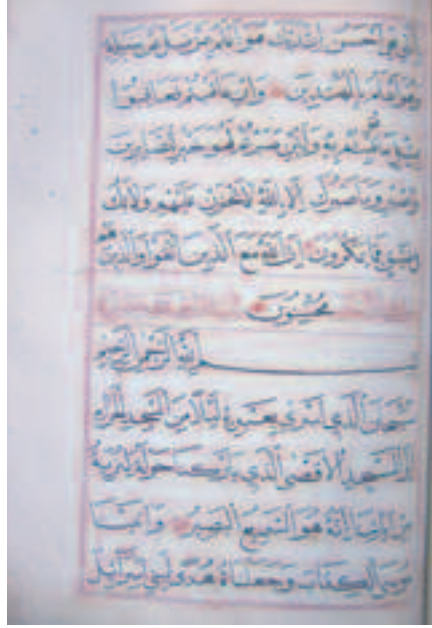 التي هي احسن ان ربك هو اعلم بمن ضل عن سبيله
وهو اعلم بالمهتدين وان عاقبتم فعاقبوا
بمثل ما عوقبتم به ولئن صبرتم لهو خير للصابرين
واصبر وما صبرك الا بالله ولا تحزن عليهم ولا تك
في ضيق مما يمكرون ان الله مع الذين اتقوا والذين هم
محسنون
بسم الله الرحمن الرحيم
سبحان الذي اسرى بعبده ليلا من المسجد الحرام
الى المسجد الاقصى الذي باركنا حوله لنريه
من اياتنا انه هو السميع البصير واتينا
موسى الكتاب وجعلناه هدى لبني اسرائيل